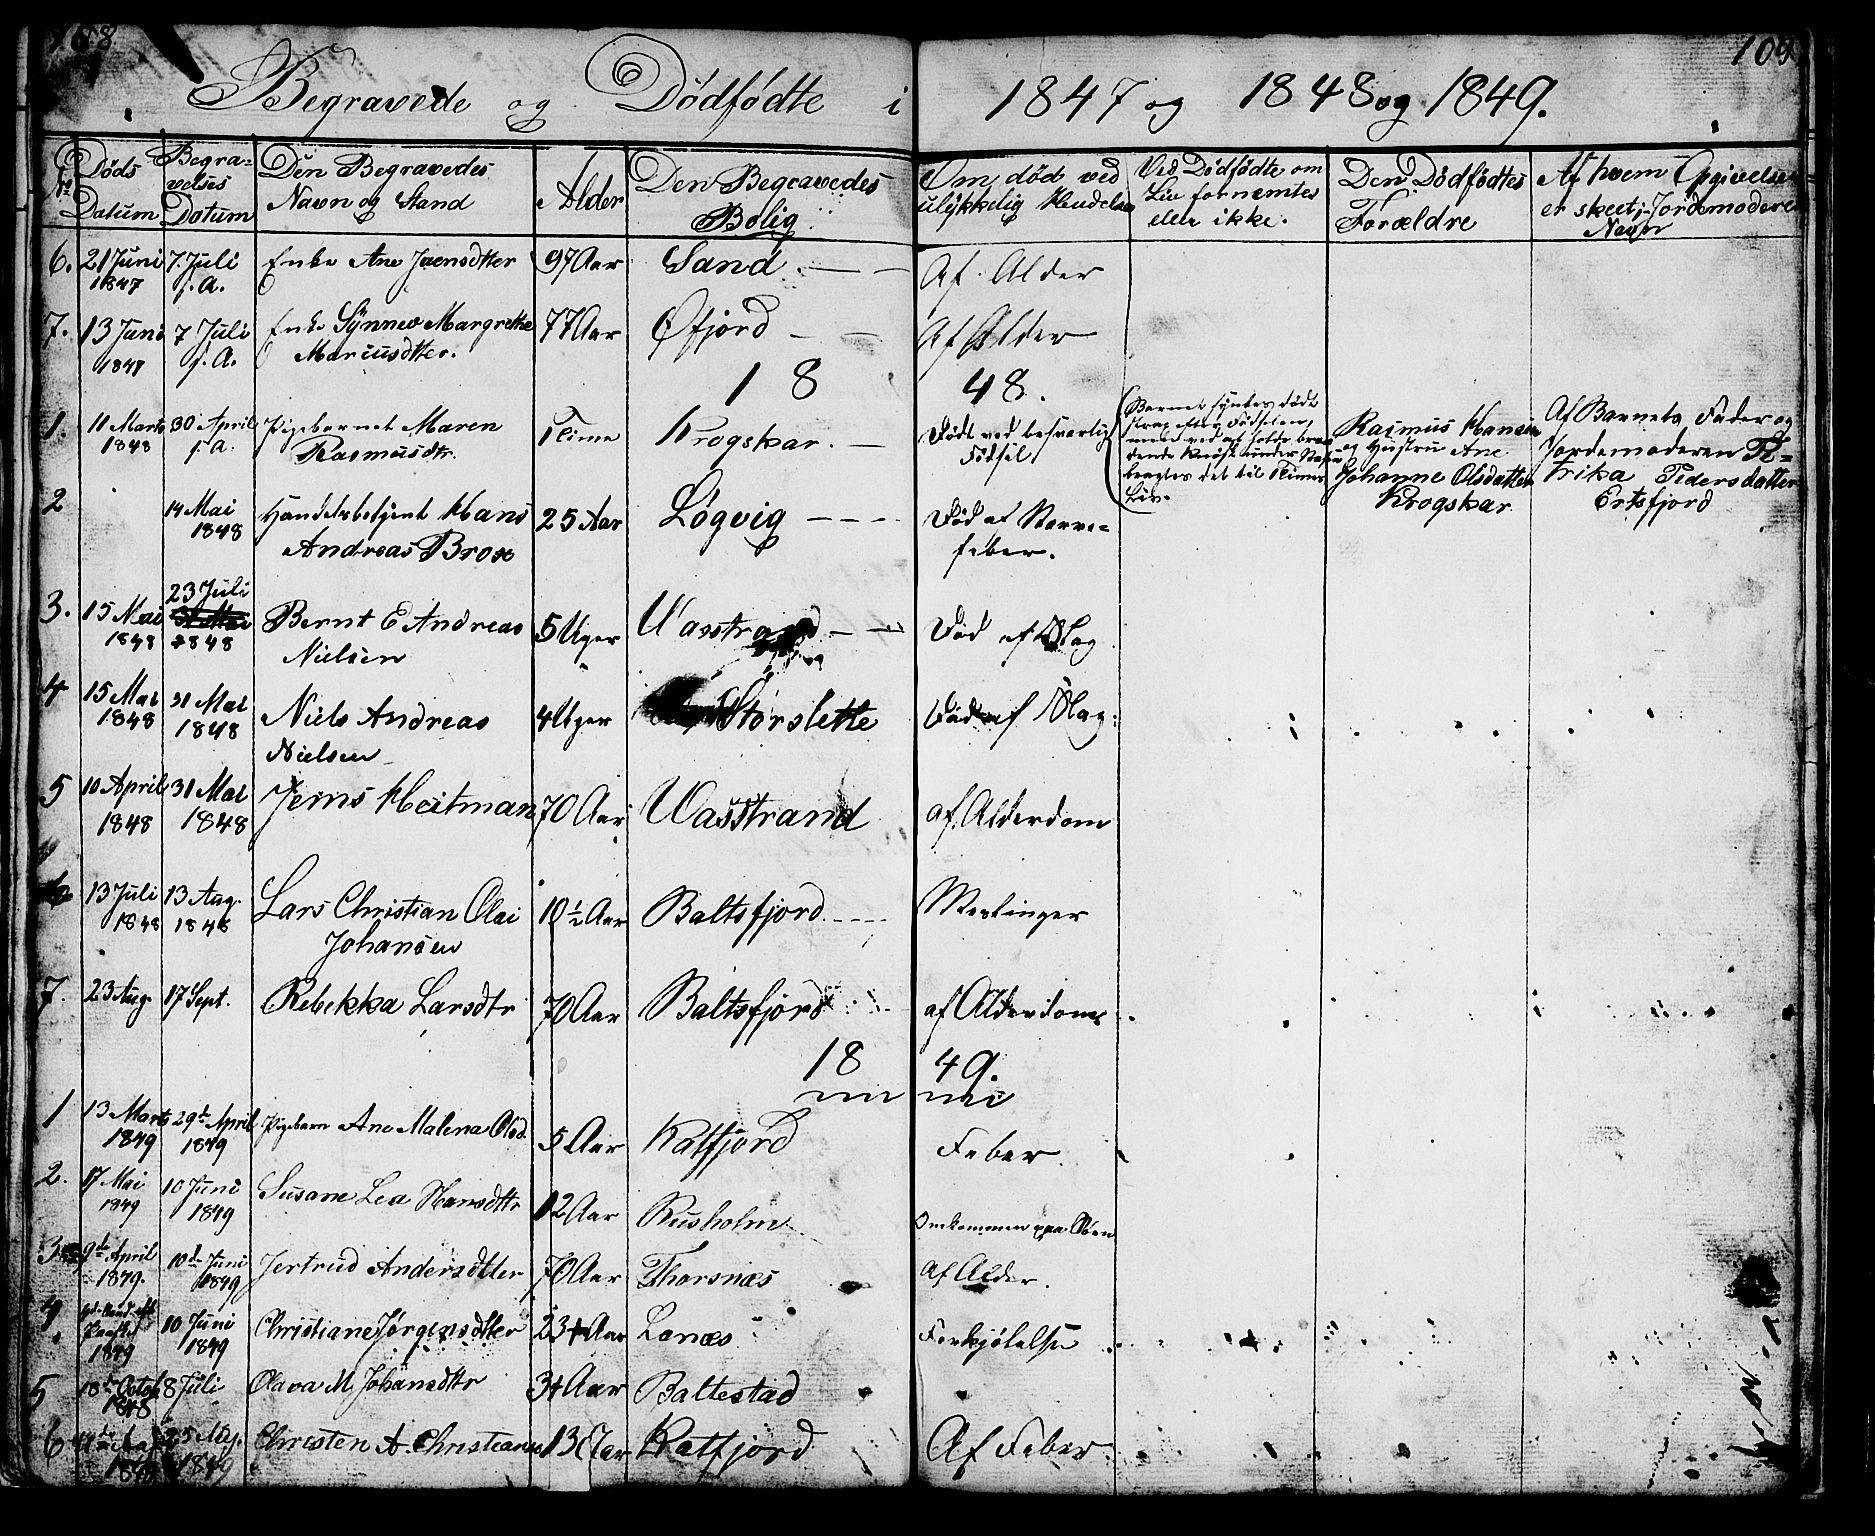 108
109
Begravede og Dødfødte i 1847 og 1848 og 1849.
No
Døds Datum
Begra-velses Datum
Den Begravedes Navn og Stand
Alder
Den Begravedes Bolig
Om død ved ulykkelig Hendelse
Ved Dødfødte om Liv fornemtes eller ikke.
Den Dødfødtes Forældre
Af hvem Opgivelsen er skeet; Jordemoderens Navn
6. 21 Juni 1847 7. Juli s. A. Enke Ane Jaensdtter 97 Aar Sand Af Alder
7. 13 Juni 1847 7 Juli s. A. Enke Synnev Margrethe Mariusdtter. 77 Aar Øfjord Af Alder
1848.
1. 11 Marts 1848 30 April s. A. Pigebarnet Maren Rasmusdtr. 1 Time Krogskar. Født ved besværlig Fødsel
Barnet syntes dødt
strax efter Fødselen,
men ved at holde bræn-
dende
bragtes det til 1 Times
Liv.
Rasmus Hansen
og Hustru Ane
Johanne Olsdatter
Krogskar
Af Barnets Fader og
Jordemoderen Fr=
drika Pedersdatter
Ertsfjord
2 14 Mai 1848 Handelsbetjent Hans Andreas Brox 25 Aar Løgvig Død af Nerve=feber.
3. 15 Mai 1848 23 Juli 31 Mai 1848 Bernt E Andreas Nielsen 5 Uger Vasstrand Død af Slag
4 15 Mai 1848 31 Mai 1848 Niels Andreas Nielsen 4 Uger Storslette Død af Slag.
5 10 April 1848 31 Mai 1848 Jens Heitman 70 Aar Vasstrand af Alderdom
6 13 Juli 1848 13 Aug. 1848 Lars Christian Olai Johansen 10 ½ Aar Baltsfjord Meslinger
7. 23 Aug. 17 Sept. Rebekka Larsdtr 70 Aar Baltsfjord af Alderdom
1849.
1 13 Marts 1849 29de April 1849 Pigebarn Ane Malena Olsd. 5 Aar Katfjord Feber.
2. 17 Mai 1849 10 Juni 1849 Susane Lea Hansdttr 12 Aar Rusholm Omkommen paa Søen
3 9de April 1849. 10de Juni 1849 Jertrud Andersdtter 70 Aar Thorsnæs Af Alder.
4 1849 10 Juni 1849 Christiane Jørgensdtter 23 Aar Lanæs Forkjølelse
5 18de Octob 1848 8 Juli Olava M. Johansdttr 34 Aar Baltestad
6 25 1849 Christen A. Christians 13 Aar Katfjord Af Feber